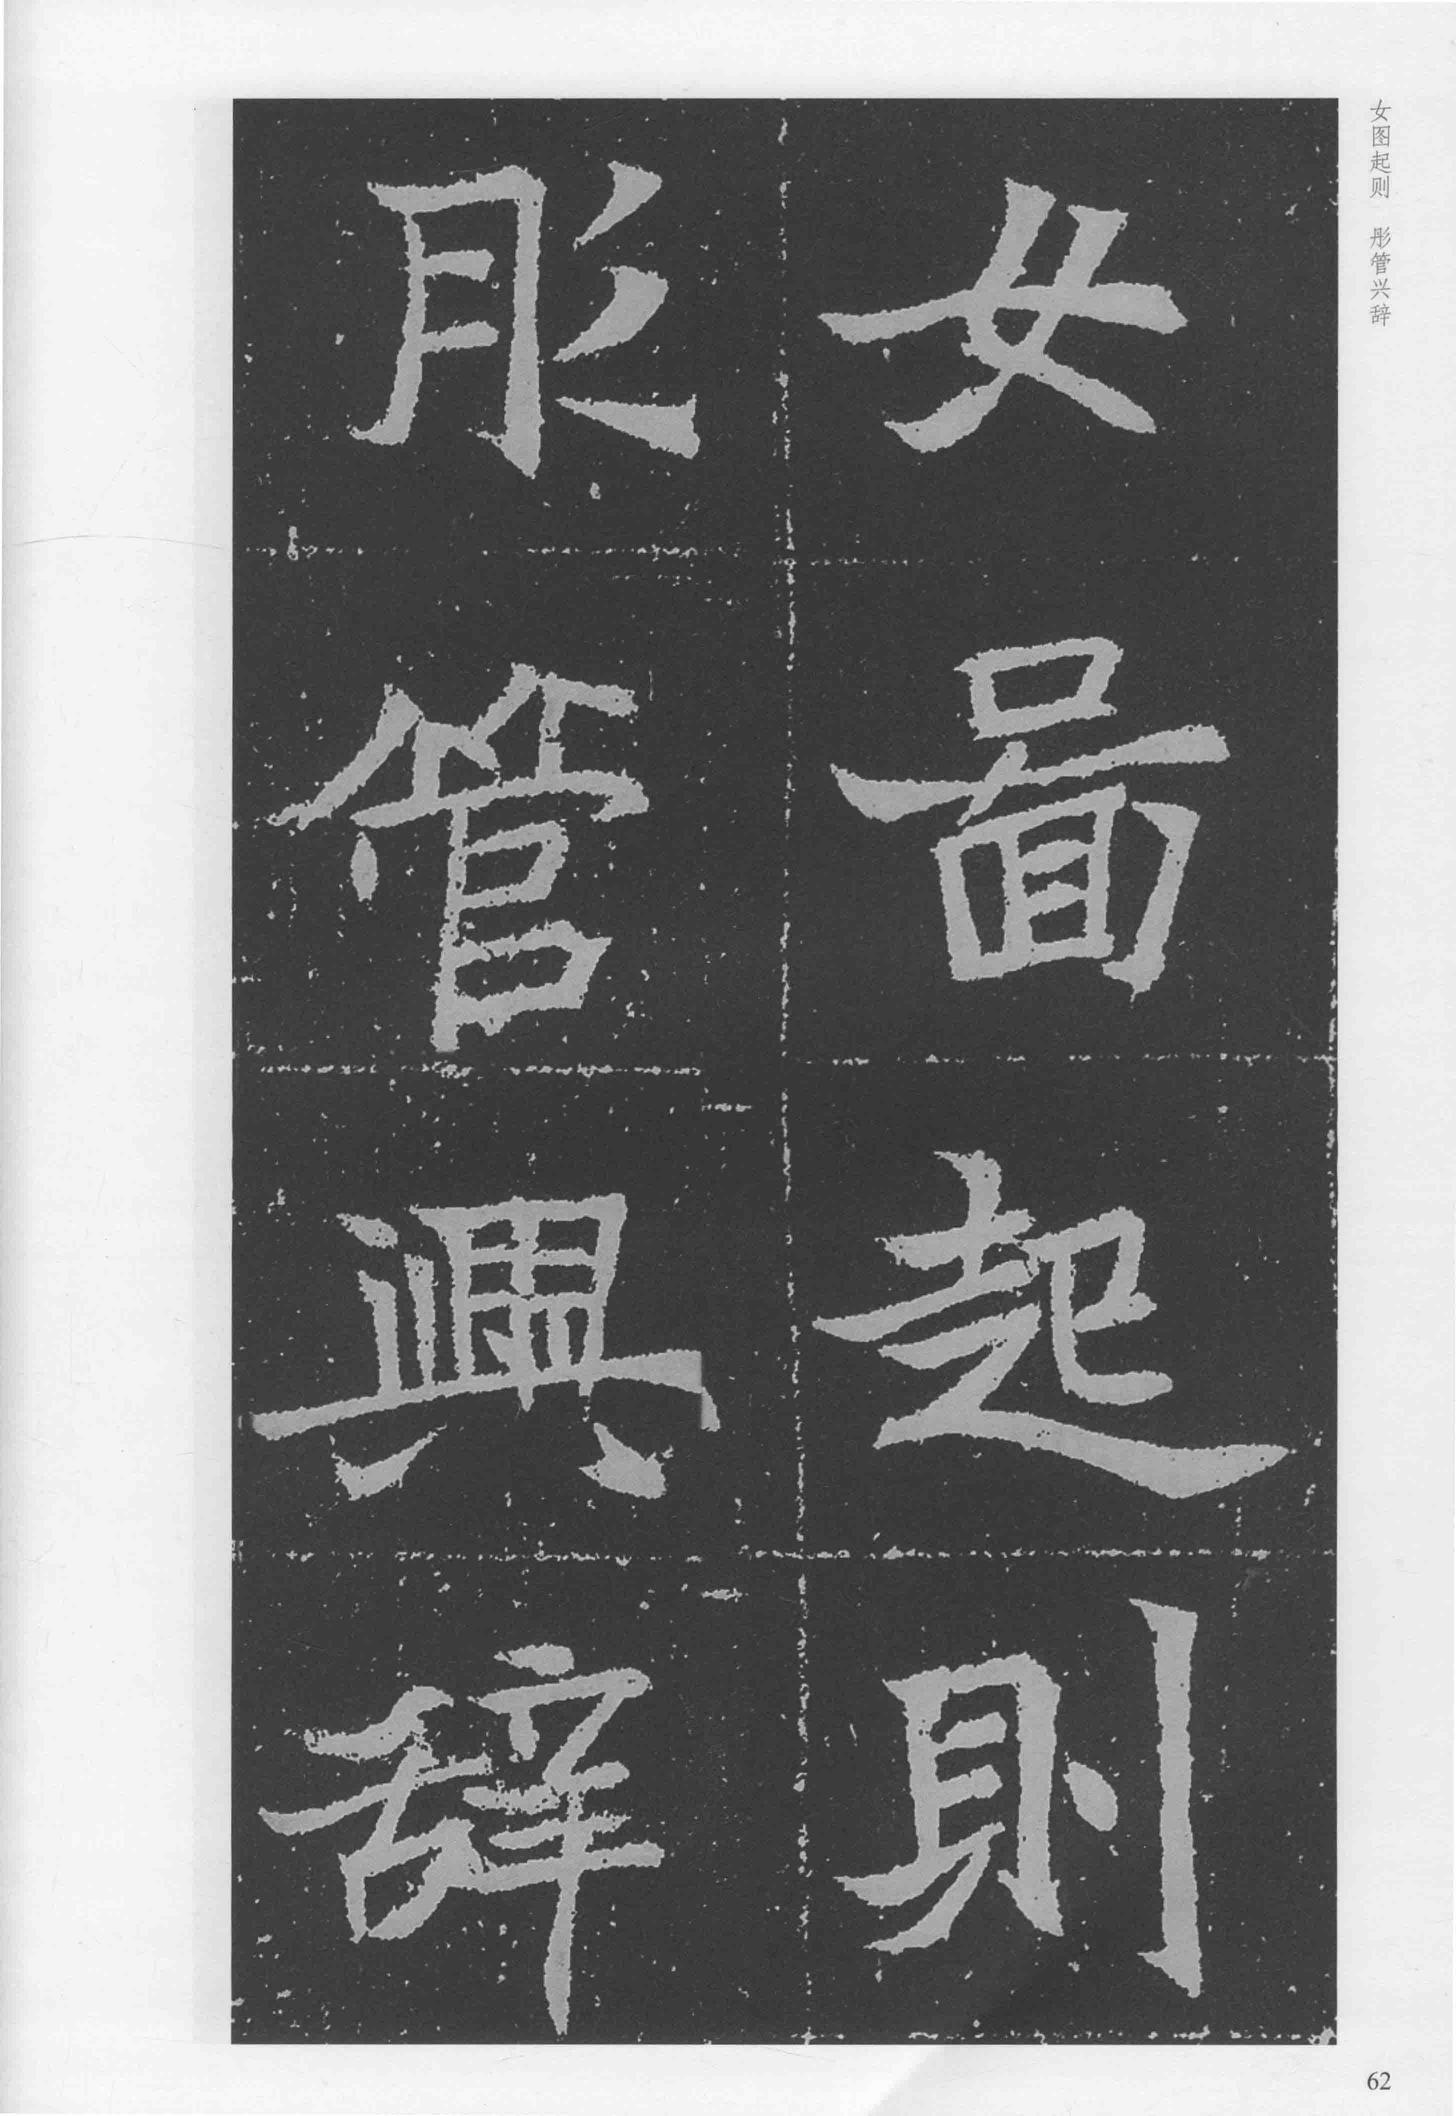 女圖起則
彤管興辭
女图起则 彤管兴辞
62